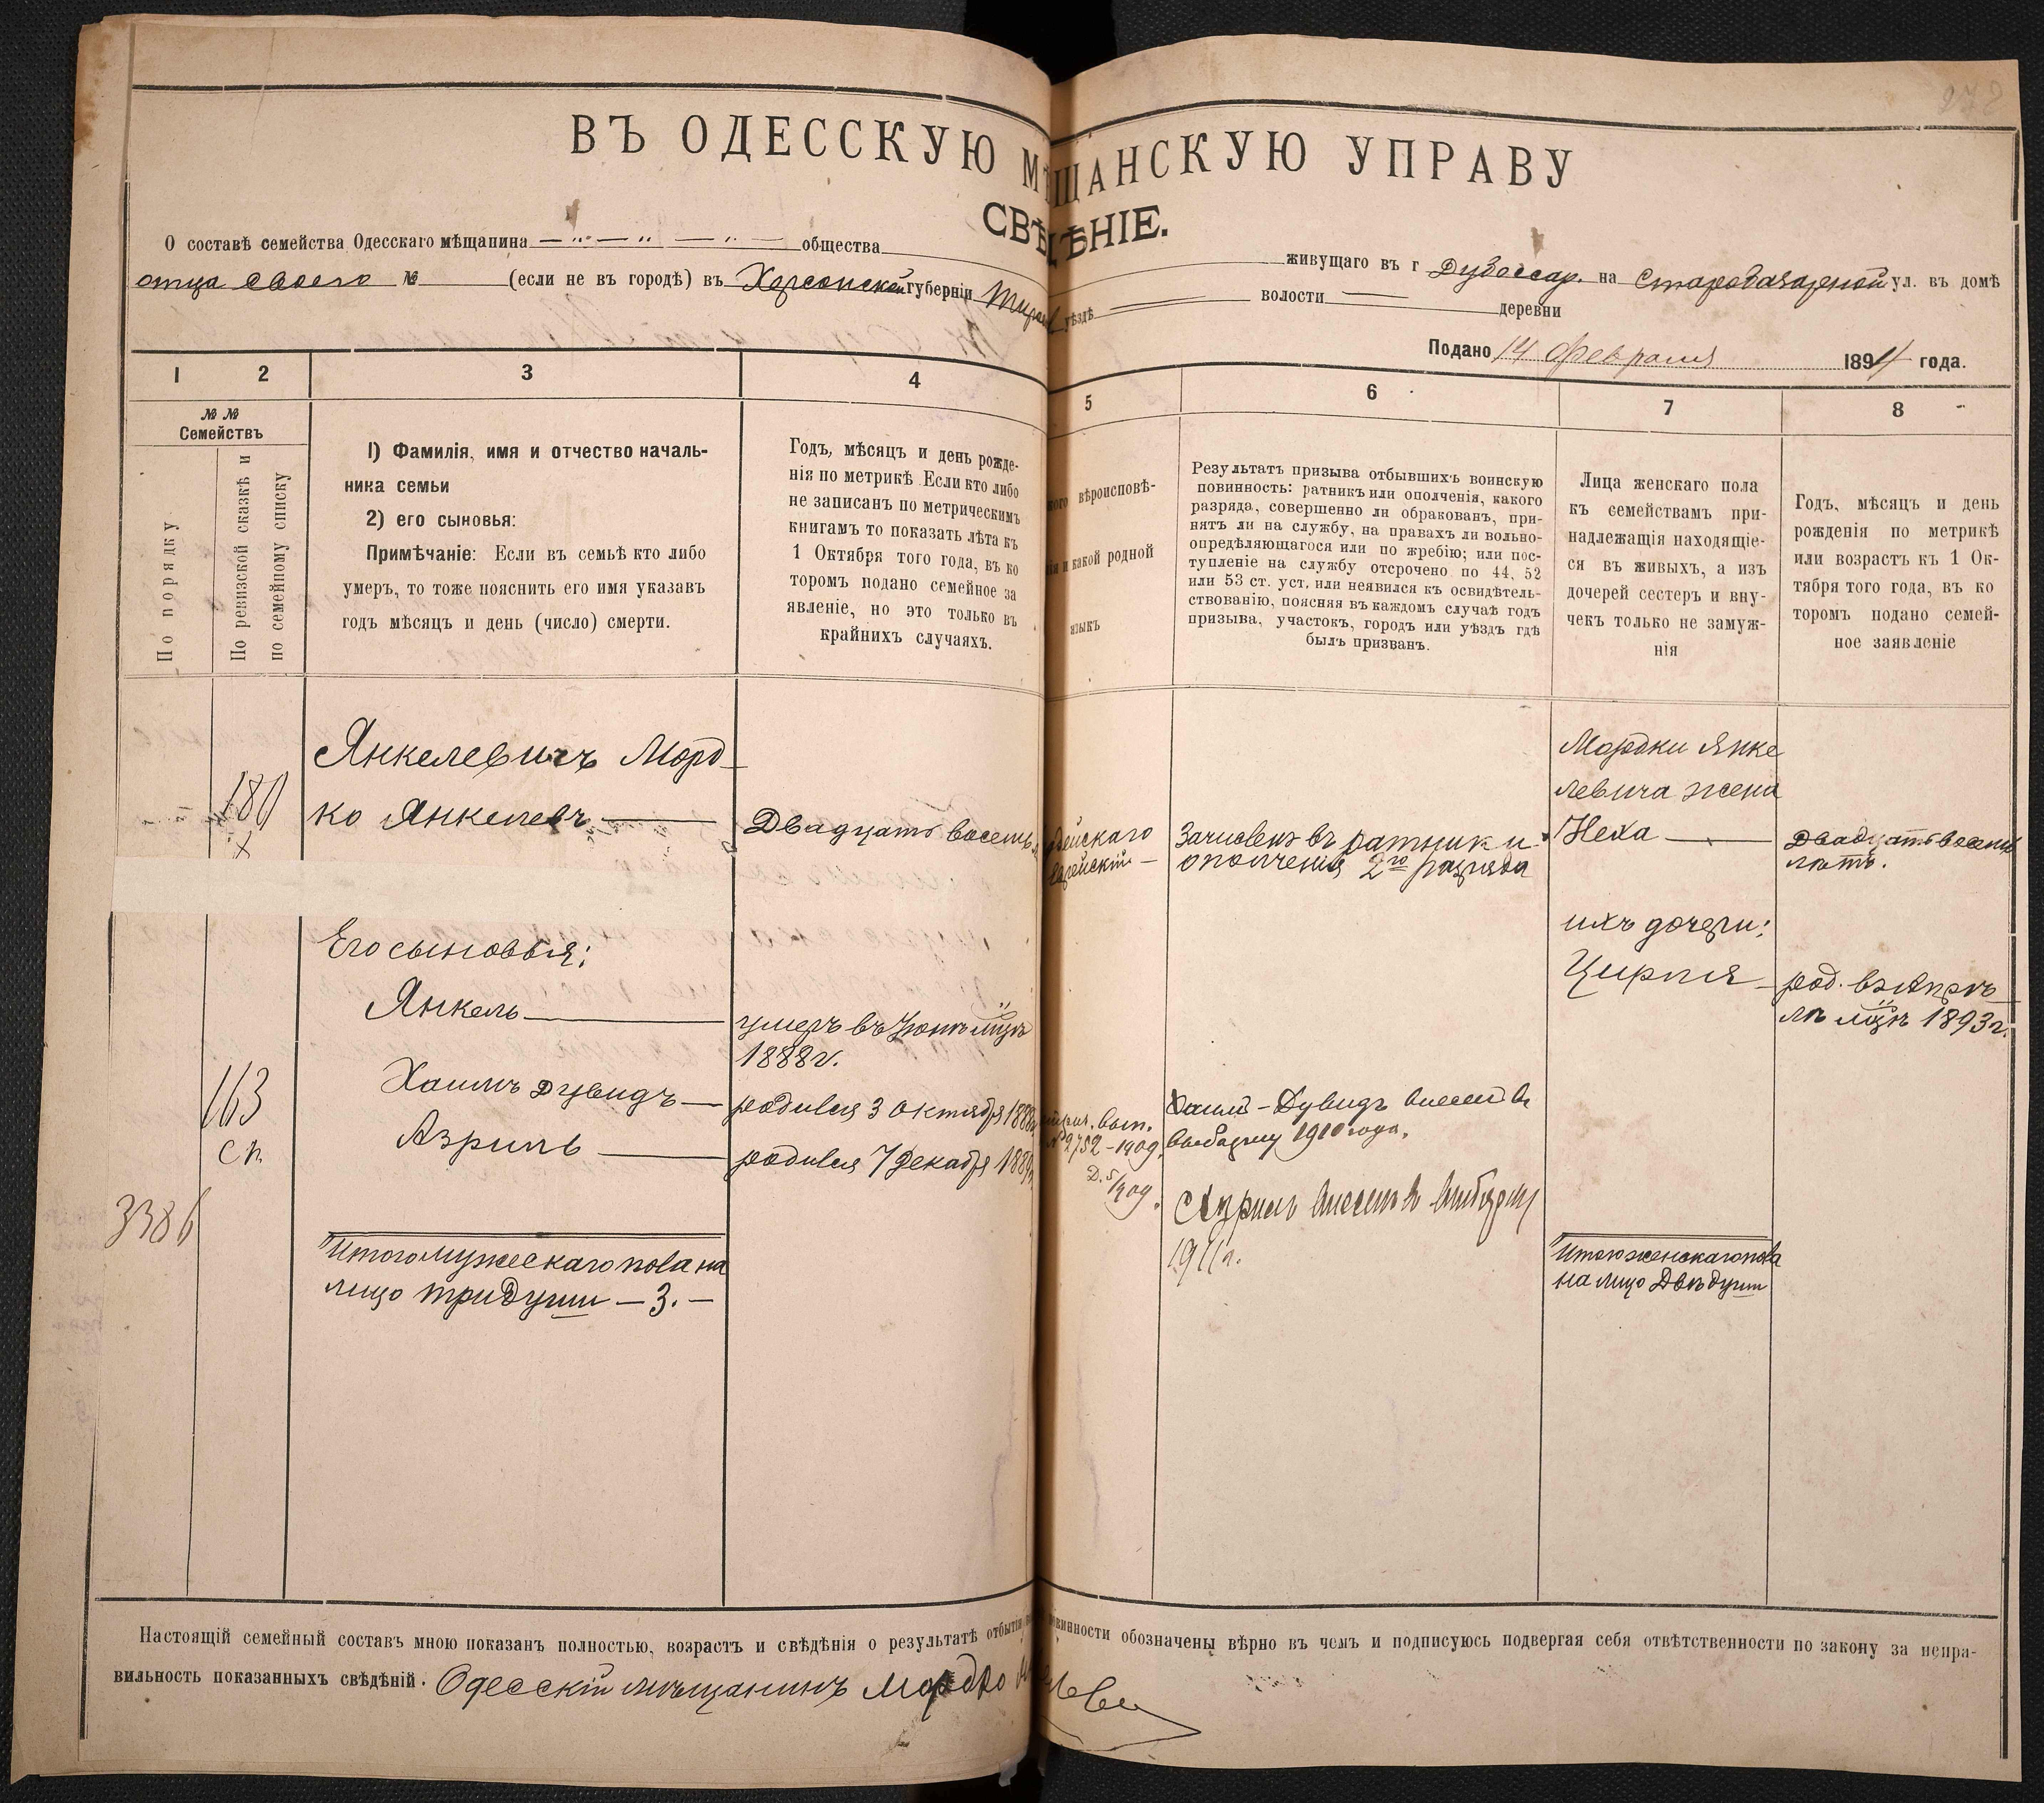 ВЪ ОДЕССКУЮ МѢЩАНСКУЮ УПРАВУ
СВѢДѢНІЕ.
О составѣ семейства Одесскаго мѣщанина общества живущаго въ г Дубоссар. на Старобазарной ул. въ домѣ
отца своего № (если не въ городѣ) въ Херсонской губерніи Тирасп уѣздѣ волости деревни
Подано 14 Февраля 1894 года.
1 2 3 4 5 6 7 8
№ №
Семействъ
По порядку
По ревизской сказкѣ и
по семейному списку
1) Фамилія, имя и отчество началь-
ника семьи
2) его сыновья:
Примѣчаніе: Если въ семьѣ кто либо
умеръ, то тоже пояснить его имя указавъ
годъ мѣсяцъ и день (число) смерти.
Годъ, мѣсяцъ и день рожде-
нія по метрикѣ Если кто либо
не записанъ по метрическимъ
книгамъ то показать лѣта къ
1 Октября того года, въ ко
торомъ подано семейное за
явленіе, но это только въ
крайнихъ случаяхъ.
вѣроисповѣ-
и какой родной
языкъ
Результатъ призыва отбывшихъ воинскую
повинность: ратникъ или ополченія, какого
разряда, совершенно ли обракованъ, при-
нятъ ли на службу, на правахъ ли вольно-
опредѣляющагося или по жребію; или пос-
тупленіе на службу отсрочено по 44, 52
или 53 ст. уст. или неявился къ освидѣтель-
ствованію, поясняя въ каждомъ случаѣ годъ
призыва, участокъ, городъ или уѣздъ гдѣ
былъ призванъ.
Лица женскаго пола
къ семействамъ при-
надлежащія находящіе-
ся въ живыхъ, а изъ
дочерей сестеръ и вну-
чекъ только не замуж-
нія
Годъ, мѣсяцъ и день
рожденія по метрикѣ
или возрастъ къ 1 Ок-
тября того года, въ ко
торомъ подано семей-
ное заявленіе
180
х
Янкелевичъ Морд-
ко Янкелевъ
Двадцать восемь
дейскаго
Еврейскій
Зачисленъ въ ратники
ополченія 2го разряда
Мордки Янке
левича жена
Неха
Двадцать восемь
лѣтъ.
Его сыновья:
Янкель
умеръ въ Іюнѣ мцѣ
1888г.
Хаимъ Дувидъ
родился 3 октября 1888
Азриль
родился 7 Декабря 1889
163
сп
3386
вып.
№ 2752 - 1909.
Д. 5/1909.
Хаимъ-Дувидъ внесенъ въ
выборку 1910 года.
Азриль внесенъ въ выборку
1911г.
ихъ дочери:
Цирля
род. въ Апрѣ-
лѣ мцѣ 1893г.
Итого мужескаго пола на
лицо три души — 3. —
Итого женскаго пола
на лицо Двѣ души
Настоящій семейный составъ мною показанъ полностью, возрастъ и свѣдѣнія о результатѣ отбытія повинности обозначены вѣрно въ чемъ и подписуюсь подвергая себя отвѣтственности по закону за непра-
вильность показанныхъ свѣдѣній. Одесскій мѣщанинъ Мордко